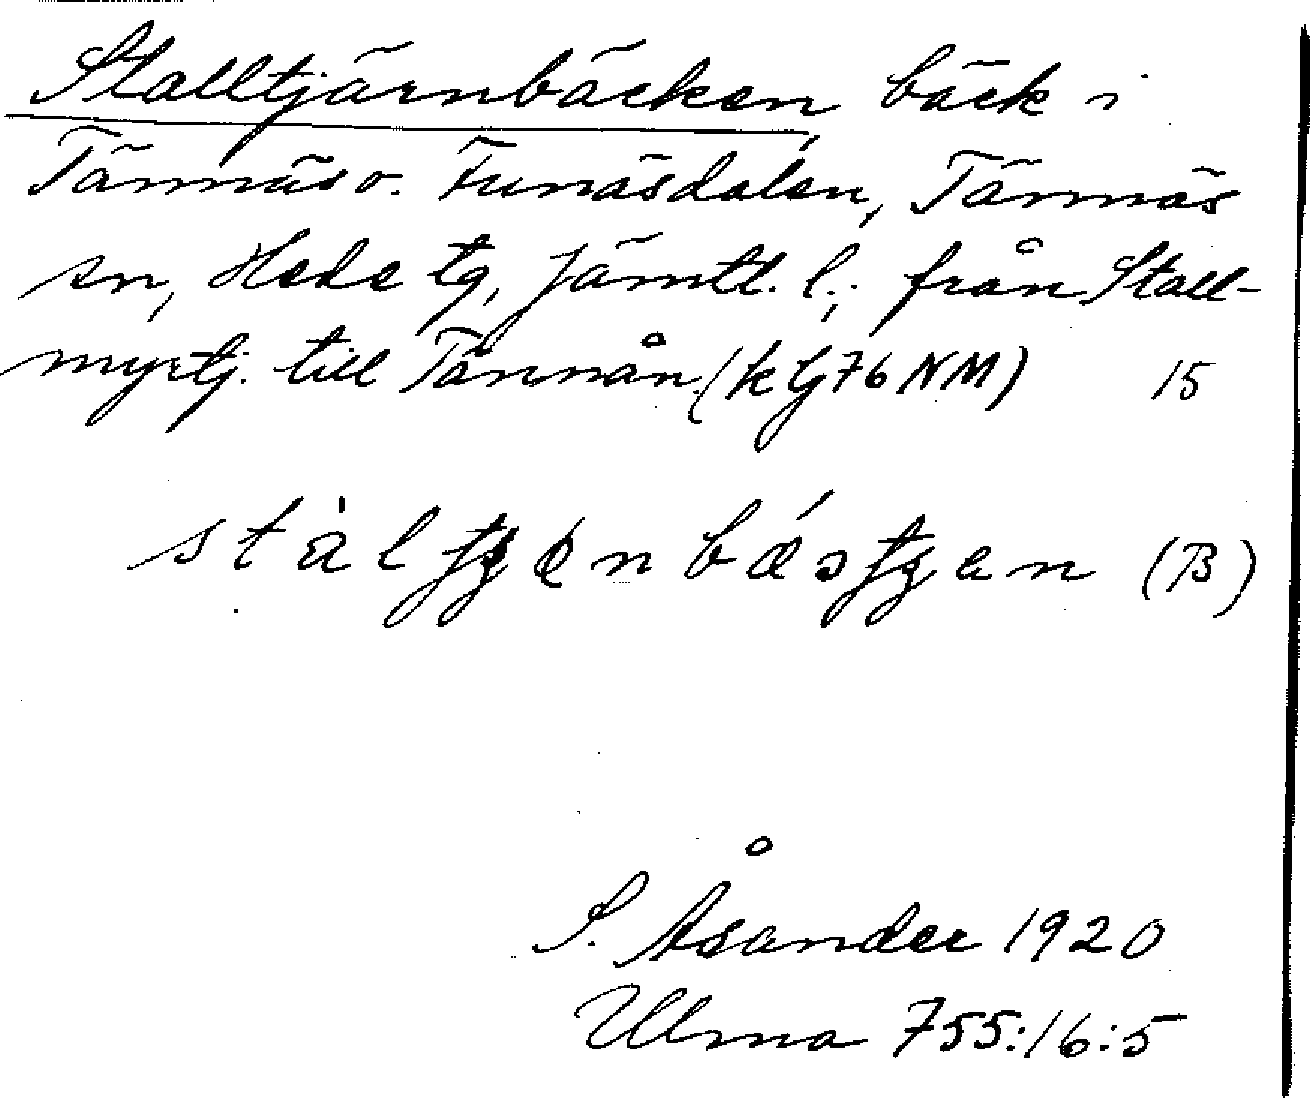 Stalltjärnbäcken, bäck i
Tännäs o. Funäsdalen, Tännäs
sn, Hede tg, Jämtl. l.; från Stall-
myrtj. till Tännån. (k Lj 76 NM) 15
(B)
S. Åsander 1920
Ulma 755:16:5